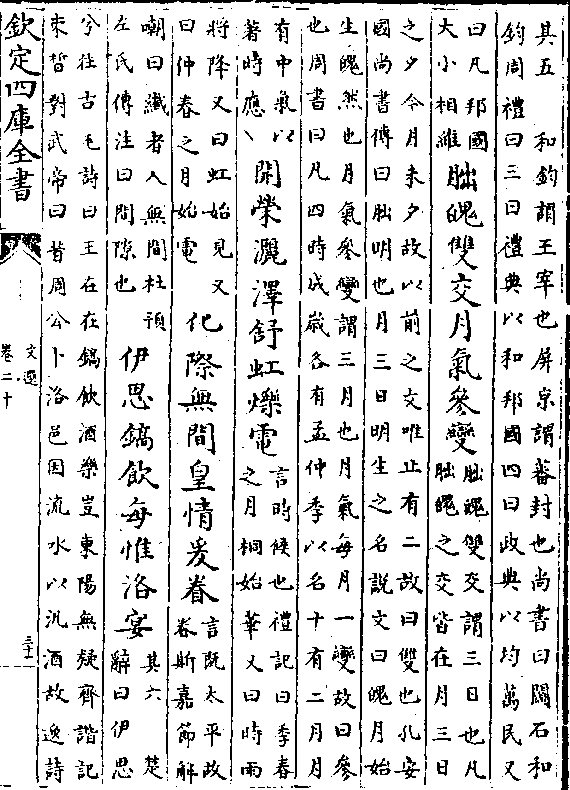 其五　和鈞謂王宰也屏宗謂蕃封也尚書曰關石和
鈞周禮曰三曰禮典以和邦國四曰政典以均萬民又
曰凡邦國
大小相維
朏魄雙交月氣參變
朏魄雙交謂三日也凡
朏魄之交皆在月三日
之夕今月未夕故以前之文唯止有二故曰雙也孔安
國尚書傳曰朏明也月三日明生之名說文曰魄月始
生魄然也月氣參變謂三月也月氣每月一變故曰參
也周書曰凡四時成歲各有孟仲季以名十有二月月
有中氣以
著時應
開榮灑澤舒虹爍電
言時候也禮記曰季春
之月桐始華又曰時雨
將降又曰虹始見又
曰仲春之月始電
化際無間皇情爰眷
言既太平故
眷斯嘉節解
嘲曰纖者入無間杜預
左氏傳注曰間隙也
伊思鎬飲每惟洛宴
其六　楚
辭曰伊思
兮往古毛詩曰王在在鎬飲酒樂豈東陽無疑齊諧記
束晳對武帝曰昔周公卜洛邑因流水以汎酒故逸詩
欽定四庫全書
文選
卷二十